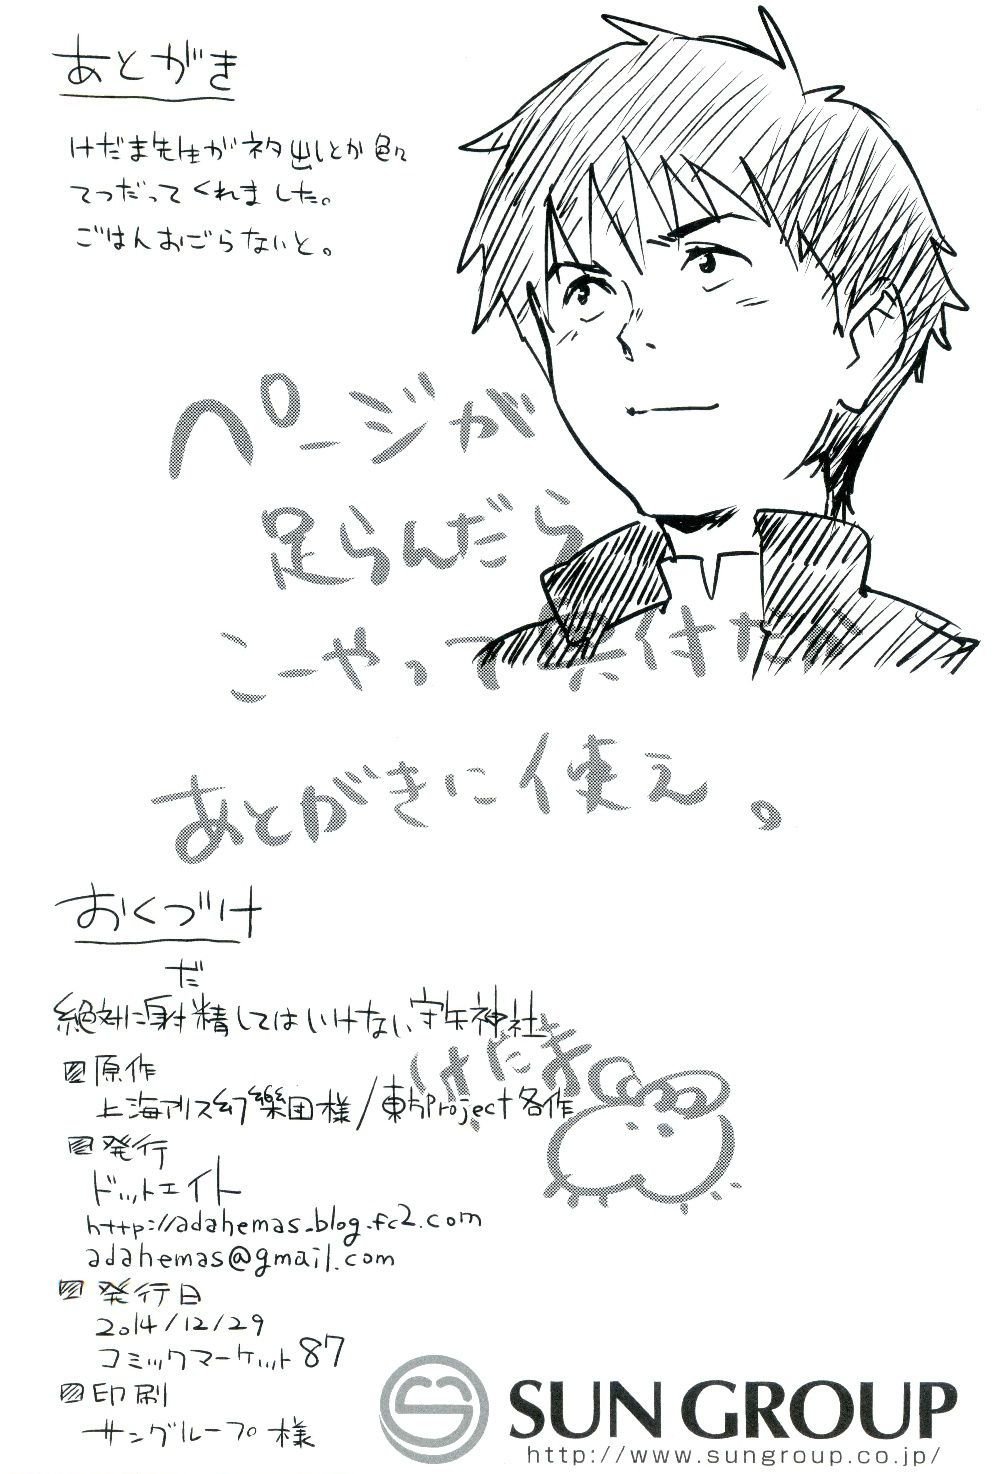 あとがき
けだま先生がネタ出しとか色々
てつだってくれました。
ごはんおごらないと。
ページが
足らんだら
こーやって奥付だか
あとがきに使え。
けだま
おくづけ
だ
絶対に射精してはいけない守矢神社
原作
上海アリス幻樂団様/東方Project各作
発行
ドットエイト
http://adahemas.blog.fc2.com
adahemas@gmail.com
発行日
2014/12/29
コミックマーケット87
印刷
サングループ様
SUN GROUP
http://www.sungroup.co.jp/